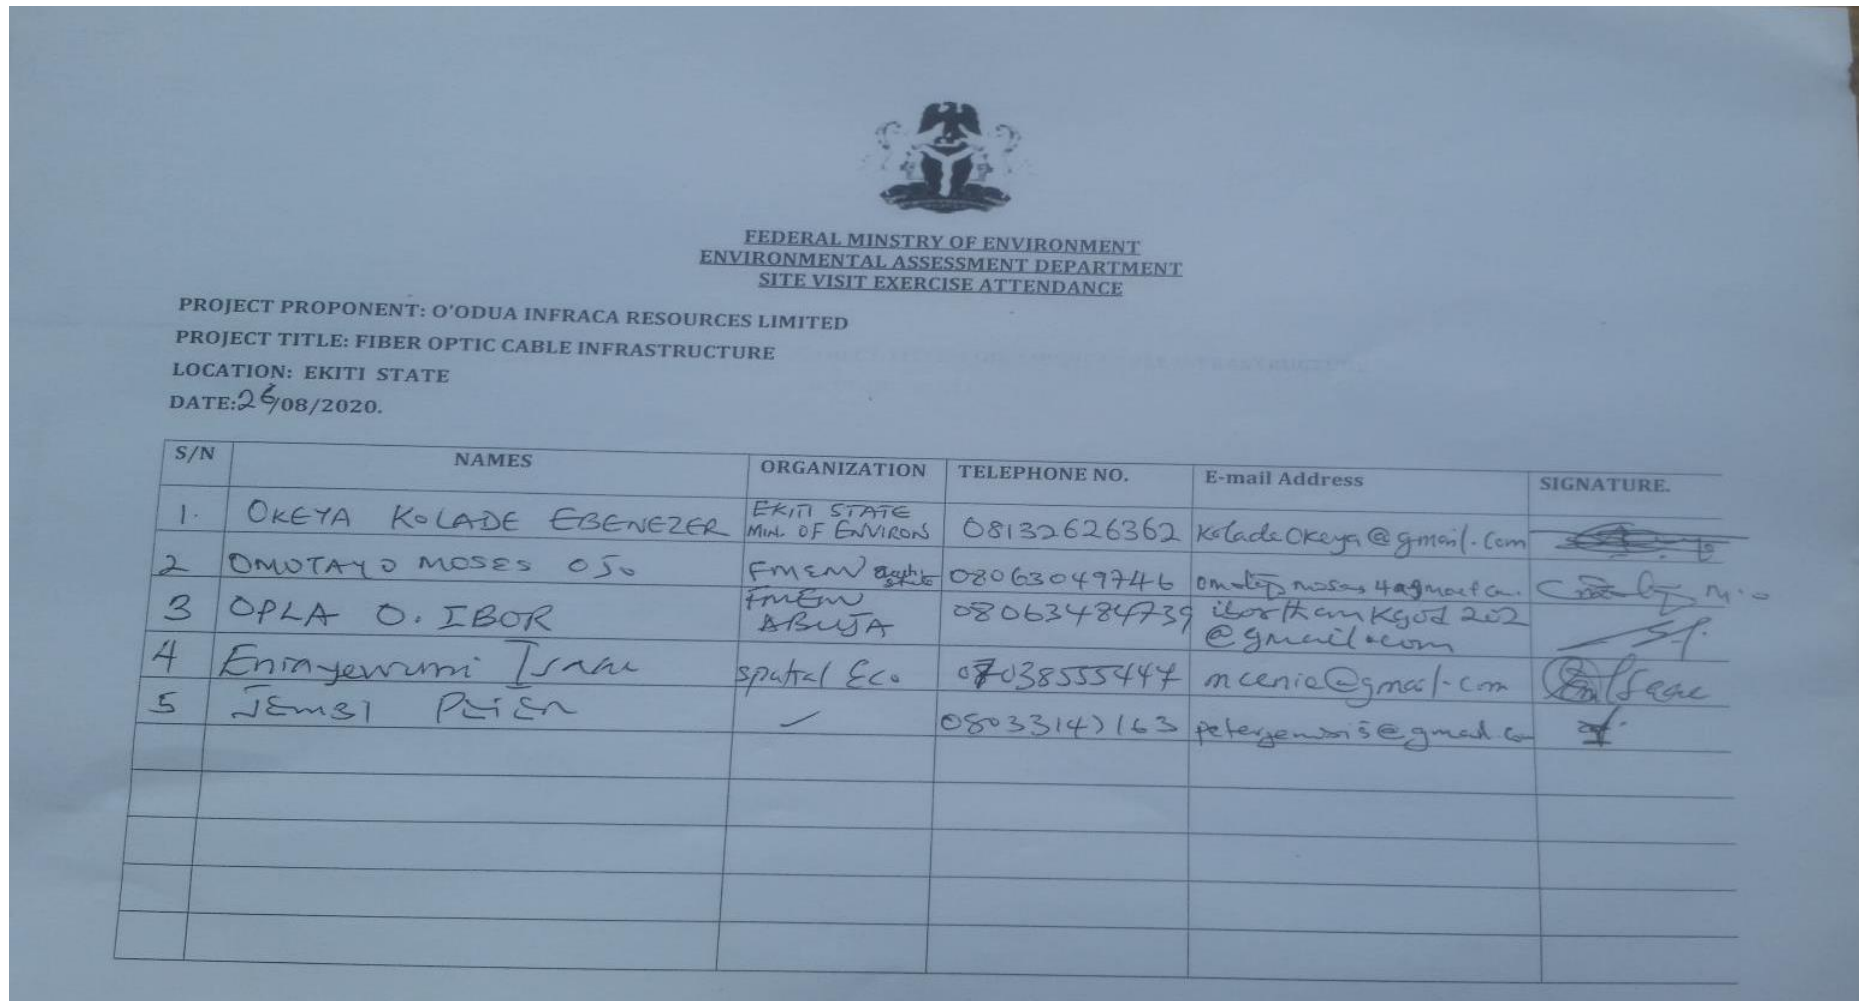 FEDERAL MINSTRY OF ENVIRONMENT
ENVIRONMENTAL ASSESSMENT DEPARTMENT
SITE VISIT EXERCISE ATTENDANCE
PROJECT PROPONENT: O'ODUA INFRACA RESOURCES LIMITED
PROJECT TITLE: FIBER OPTIC CABLE INFRASTRUCTURE
LOCATION: EKITI STATE
DATE: 26/08/2020.
S/N NAMES ORGANIZATION TELEPHONE NO. E-mail Address SIGNATURE.
1. OKEYA KOLADE EBENEZER EKITI STATE MIN. OF ENVIRON 08132626362 KoladeOkeya@gmail.com
2 OMOTAYO MOSES OJO FMENV 08063049746
3 OPLA O. IBOR FMENV ABUJA 08063484739 iborthankgod202
@gmail.com
4 Eniayewumi Isaac spatial Eco 07038555447 mcenie@gmail.com
5 08033147163